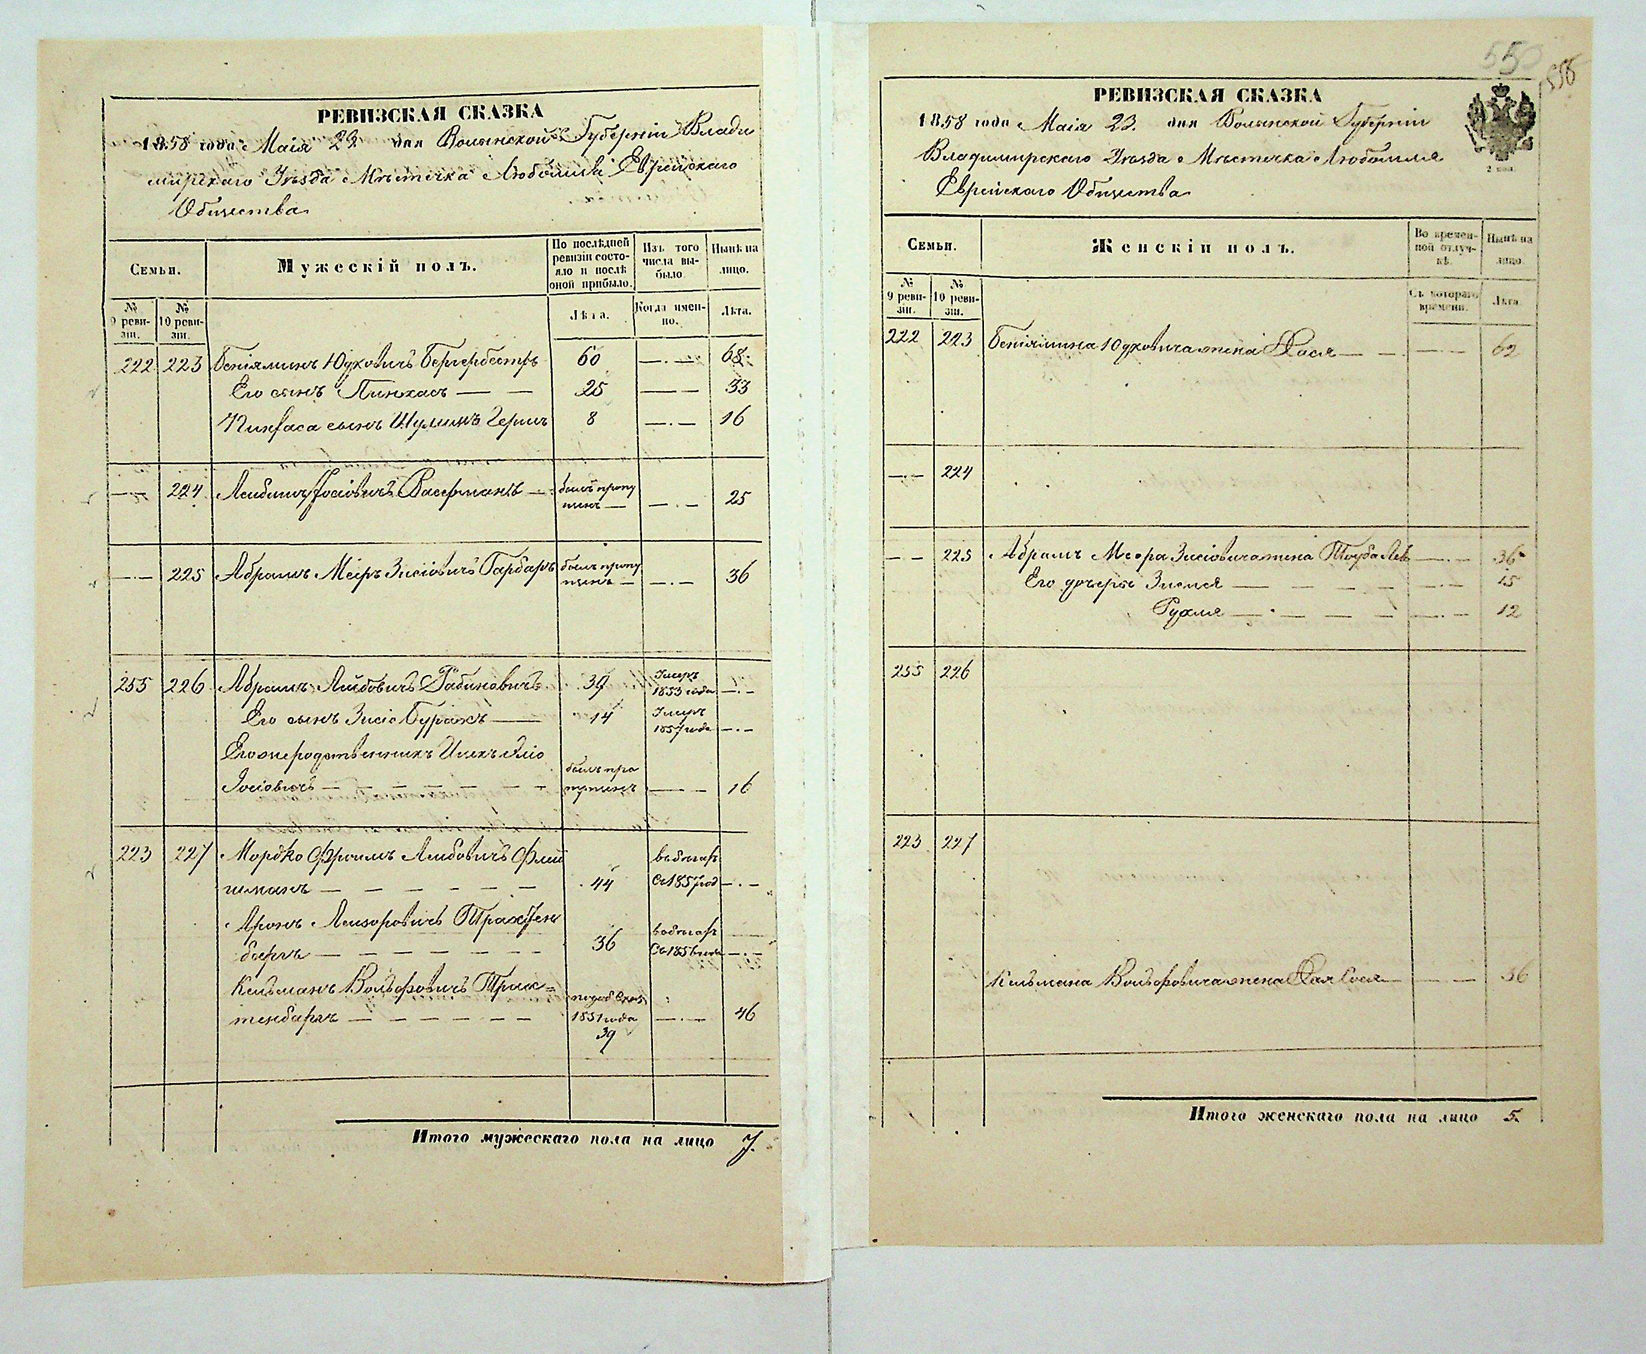 РЕВИЗСКАЯ СКАЗКА
1858 года Маія 23 дня Волынской Губерніи Влади
мирскаго Уѣзда Мѣстечка Любомля Еврейскаго
Общества
Семьи.
Мужескій полъ.
По послѣдней ревизіи состояло и послѣ оной прибыло.
Изъ того числа выбыло.
Нынѣ на лицо.
№ 9 ревизіи.
№ 10 ревизіи.
Лѣта.
Когда именно.
Лѣта.
222 223 Беніяминъ Юдковичъ 60 —·— 68
Его сынъ Пинхасъ — — 25 —— 33
Пинхаса сынъ Шулимъ Гершъ 8 —·— 16
—·— 224 Лейбишъ Іосіовичъ Васерманъ — былъ пропу
щенъ — —·— 25
—·— 225 Абрамъ Меіръ Зисіовичъ Гарбаръ былъ пропу
щенъ — —·— 36
255 226 Абрамъ Лейбовичъ Рабиновичъ 39 Умеръ
1853 года —·—
Его сынъ Зисіе Бурахъ —— 14 Умеръ
1857 года —·—
Его Ицекъ Эліо
Іосіовичъ — — — — — былъ про
пущенъ —— 16
223 227 Мордко Фроимъ Лейбовичъ Флей
шманъ — — — — — 44 въ бѣгахъ
Съ 1857 год —·—
Аронъ Лейзоровичъ Трахтен
бергъ — — — — — 36 въ бѣгахъ
Съ 185 года —·—
Кельманъ Вольфовичъ Трах=
тенбергъ — — — — —
1851 года —·— 46
39
Итого мужескаго пола на лицо 7.
550
558
РЕВИЗСКАЯ СКАЗКА
1858 года Маія 23. дня Волынской Губерніи
Владимирскаго Уѣзда Мѣстечка Любомля
Еврейскаго Общества
Семьи.
Женскій полъ.
Во временной отлучкѣ.
Нынѣ на лицо.
№ 9 ревизіи.
№ 10 ревизіи.
Съ котораго времени.
Лѣта.
222 223 Беніямина Юдковича жена Хася — — —·— 62
—·— 224
— — 225 Абрамъ Меера Зисіовича жена Тоуба Лея —·— 36
Его дочери Зисля — — — — —·— 15
Рухля —·— — — — —·— 12
255 226
223 227
Кельмана Вольфовича жена Хая Сося — —·— 36
Итого женскаго пола на лицо 5.